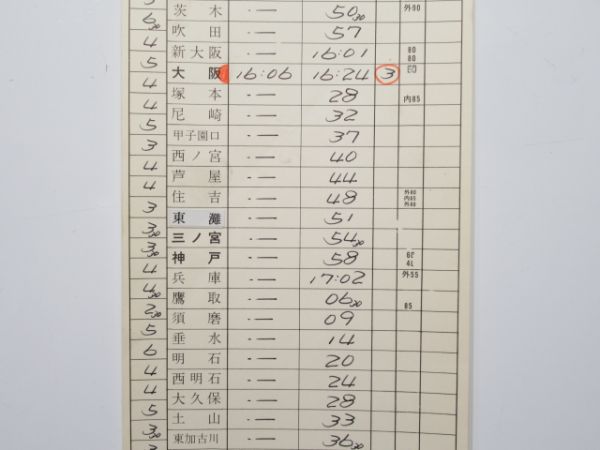 6 30 茨木 ·— 50 30 外90
吹田 ·— 57
4 新大阪 ·— 16:01 80 80
5 大阪 16:06 16:24 ③ 印
4 塚本 ·— 28 内85
4 尼崎 ·— 32
5 甲子園口 ·— 37
3 西ノ宮 ·— 40
4 芦屋 ·— 44
4 住吉 ·— 48
3 東灘 ·— 51
3 30 三ノ宮 ·— 54 30
3 30 神戸 ·— 58
4 兵庫 ·— 17:02 外55
4 30 鷹取 ·— 06 30 85
2 30 須磨 ·— 09
5 垂水 ·— 14
6 明石 ·— 20
4 西明石 ·— 24
4 大久保 ·— 28
5 土山 ·— 33
3 30 東加古川 ·— 36 30